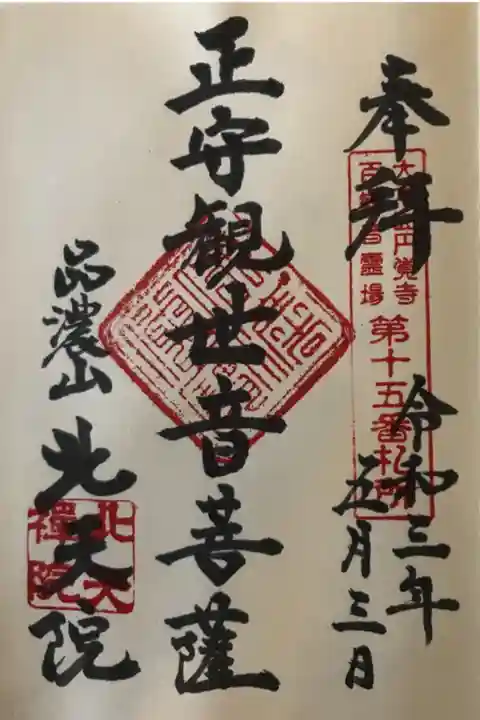 奉拝
円覚寺
百観音霊場
第十五番札所
令和三年
五月三日
正守観世音菩薩
品濃山
北天院
北天
禅院